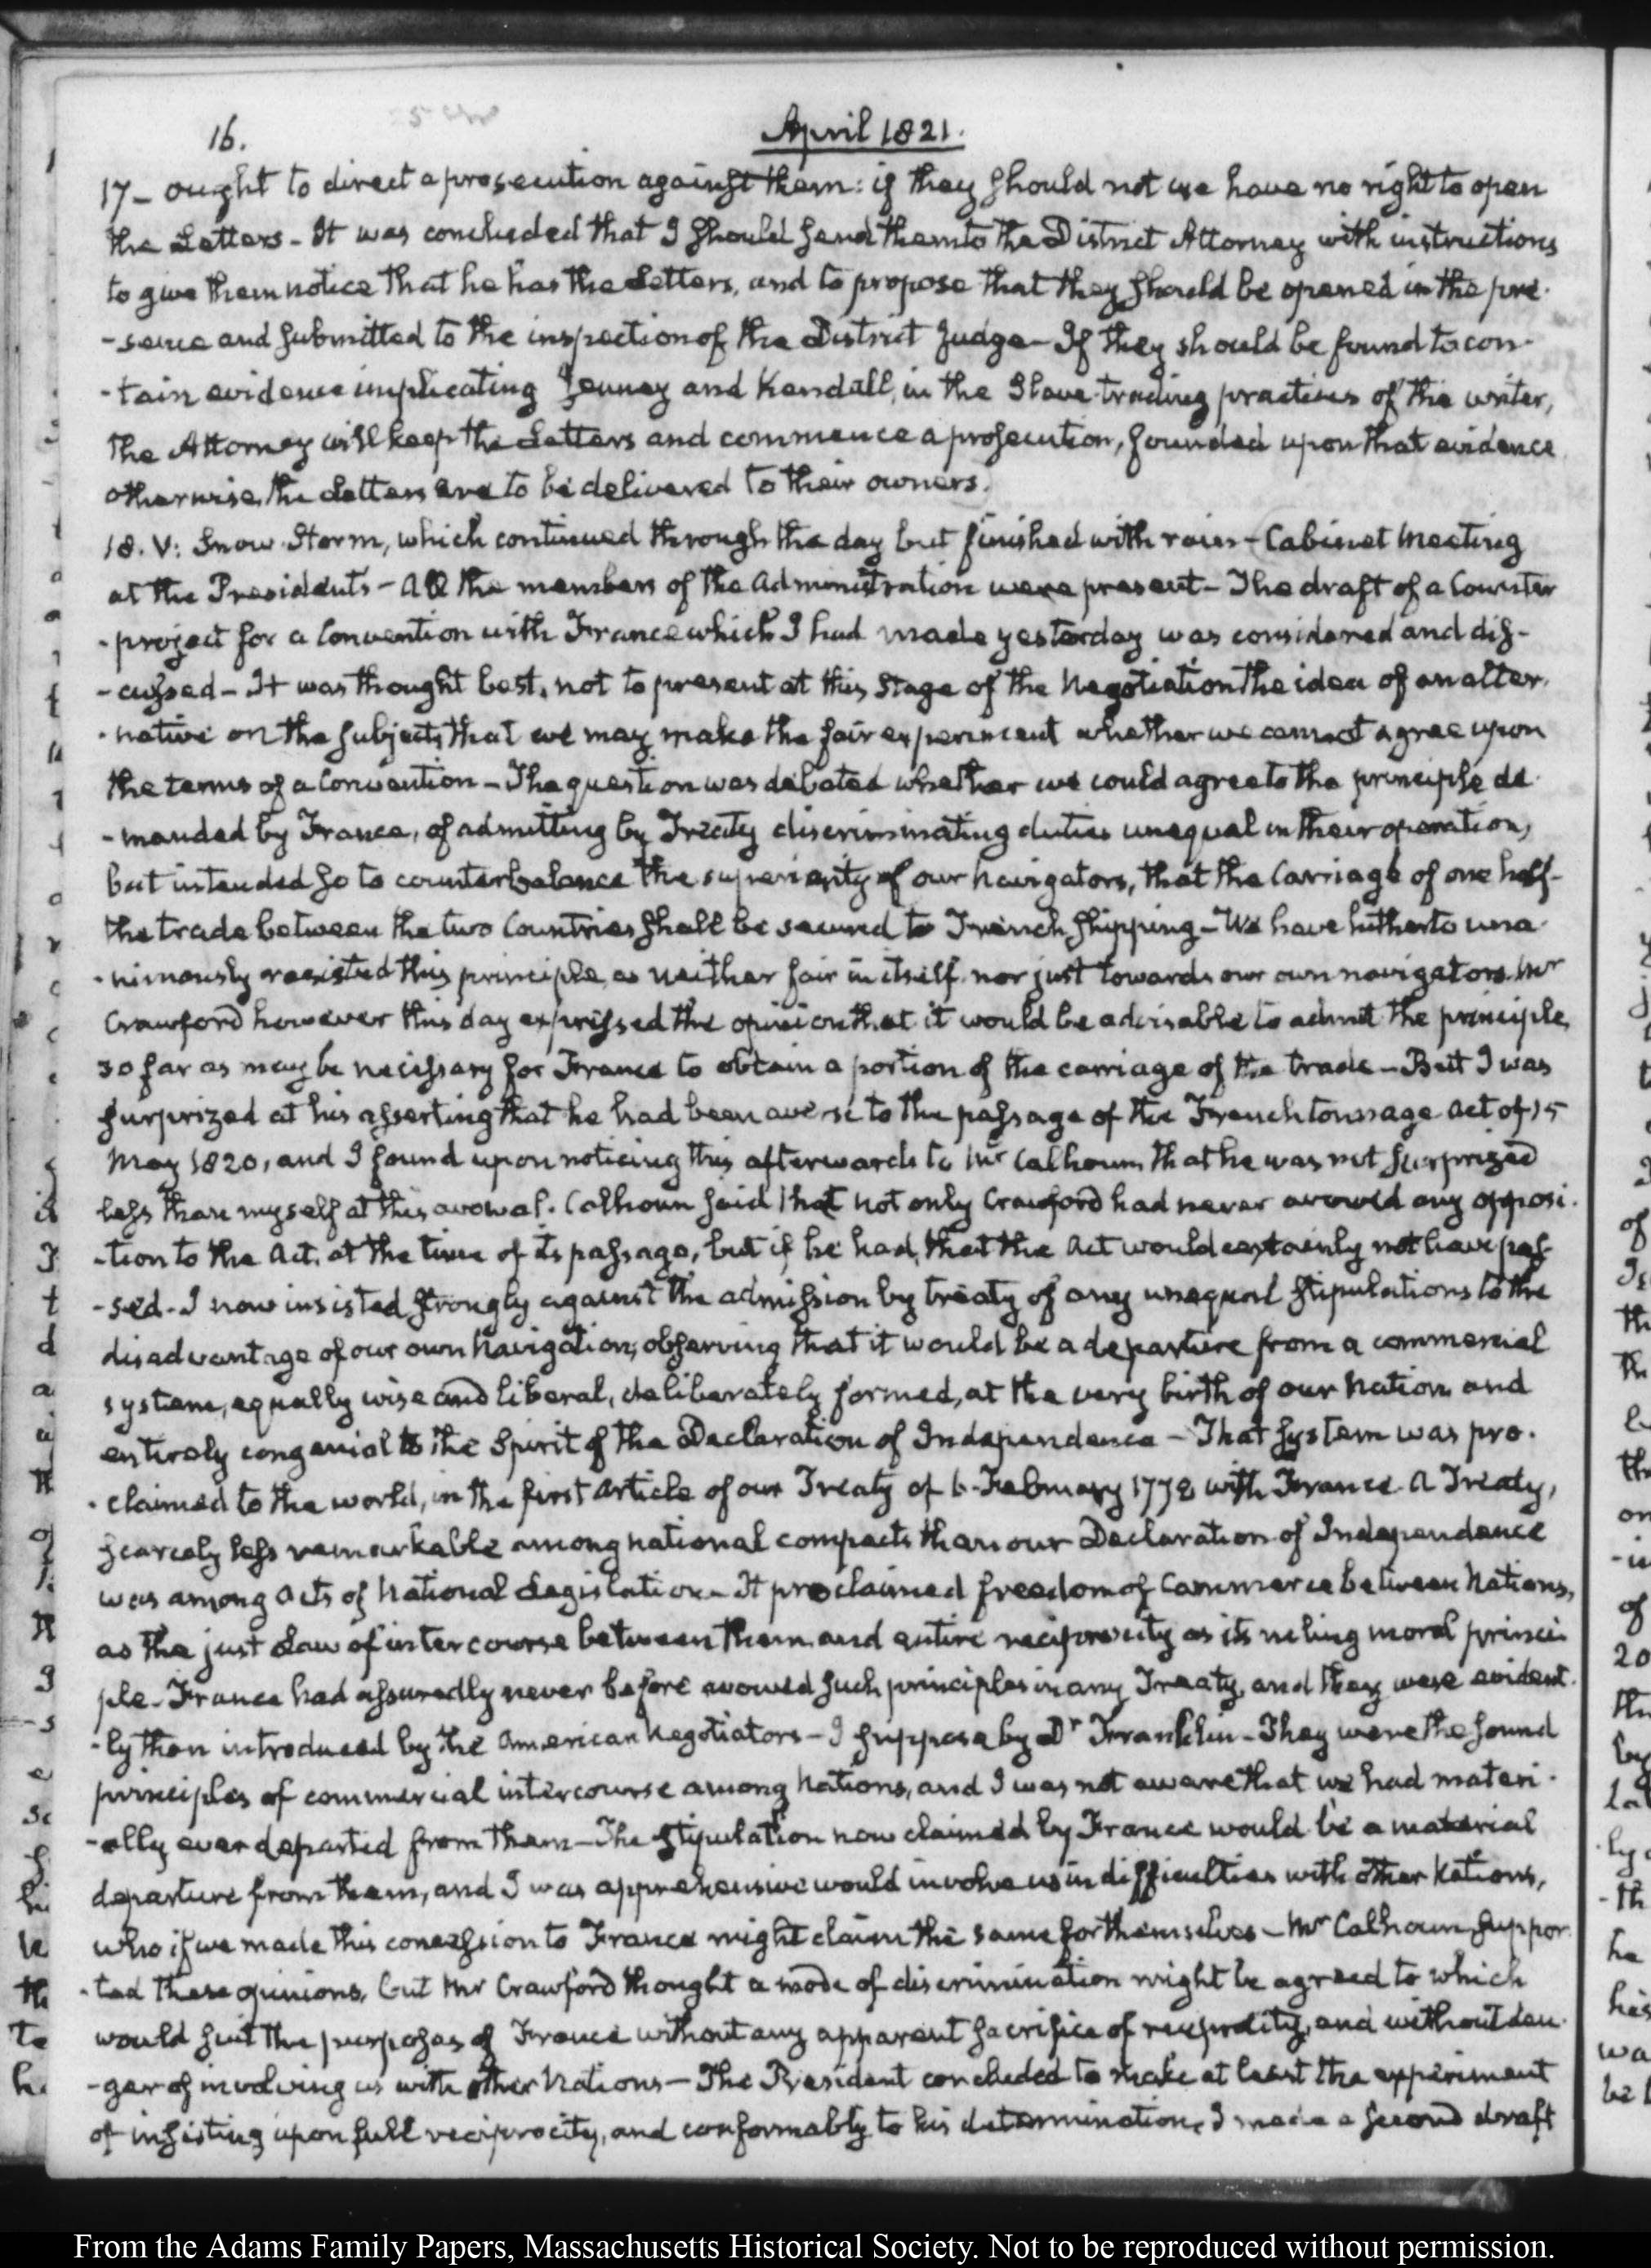 16.
April 1821.
17- ought to direct a prosecution against them: if they should not we have no right to open
the Letters - It was concluded that I should send them to the District Attorney with instructions
to give them notice that he has the Letters, and to propose that they should be opened in the pre-
-sence and submitted to the inspection of the District Judge - If they should be found to con-
-tain evidence implicating Jenney and Kendall, in the Slave-trading practices of the writer,
the Attorney will keep the Letters and commence a prosecution, founded upon that evidence
otherwise, the Letters are to be delivered to their owners.
18. V: Snow Storm, which continued through the day but finished with rain - Cabinet Meeting
at the Presidents - All the members of the Administration were present - The draft of a Counter
-project for a Convention with France which I had made yesterday was considered and dis-
-cussed - It was thought best, not to present at this Stage of the Negotiation the idea of an alter-
-native on the subjects that we may make the fair experiment whether we cannot agree upon
the terms of a Convention - The question was debated whether we could agree to the principle de-
-manded by France, of admitting by Treaty discriminating duties unequal in their operation,
but intended so to counterbalance the superiority of our Navigators, that the Carriage of one half
the trade between the two Countries shall be secured to French shipping - We have hitherto una-
-nimously resisted this principle, as neither fair in itself, nor just towards our own navigators. Mr
Crawford however this day expressed the opinion that it would be advisable to admit the principle,
so far as may be necessary for France to obtain a portion of the carriage of the trade - But I was
surprized at his asserting that he had been averse to the passage of the French tonnage Act of 15
May 1820, and I found upon noticing this afterwards to Mr Calhoun, that he was not surprized
less than myself at this avowal. Calhoun said that not only Crawford had never avowed any opposi-
-tion to the Act, at the time of its passage, but if he had, that the Act would certainly not have pas-
-sed - I now insisted strongly against the admission by treaty of any unequal stipulations to the
disadvantage of our own Navigation, observing that it would be a departure from a commercial
system, equally wise and liberal, deliberately formed, at the very birth of our Nation and
entirely congenial to the Spirit of the Declaration of Independence - That system was pro-
-claimed to the world, in the first Article of our Treaty of 6. February 1778 with France. A Treaty,
scarcely less remarkable among national compacts than our Declaration of Independence
was among acts of National Legislation - It proclaimed freedom of Commerce between Nations,
as the just Law of intercourse between them and entire reciprocity as its ruling moral princi-
ple - France had assuredly never before avowed such principles in any Treaty, and they were evident-
-ly then introduced by the American Negotiators - I suppose by Dr Franklin - They were the sound
principles of commercial intercourse among Nations, and I was not aware that we had materi-
-ally ever departed from them - The stipulation now claimed by France would be a material
departure from them, and I was apprehensive would involve us in difficulties with other Nations,
who if we made this concession to France might claim the same for themselves - Mr Calhoun suppor-
-ted these opinions, but Mr Crawford thought a mode of discrimination might be agreed to which
would suit the purposes of France without any apparent sacrifice of reciprocity, and without dan-
-ger of involving us with other Nations - The President concluded to make at least the experiment
of insisting upon full reciprocity, and conformably to his determination, I made a second draft
From the Adams Family Papers, Massachusetts Historical Society. Not to be reproduced without permission.